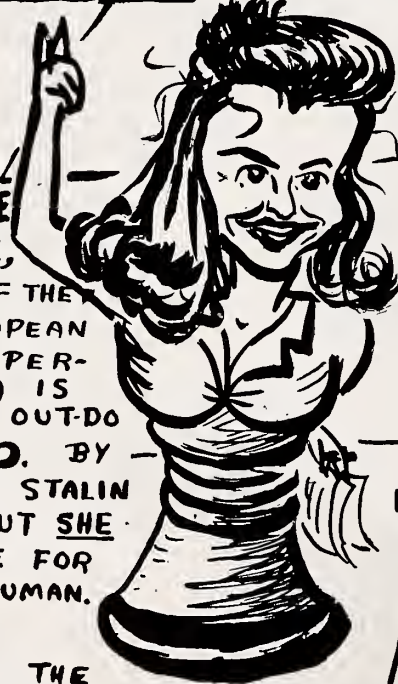 E
F THE
PEAN
PER-
IS
OUT-DO
O. BY
STALIN
UT SHE
E FOR
UMAN.
THE